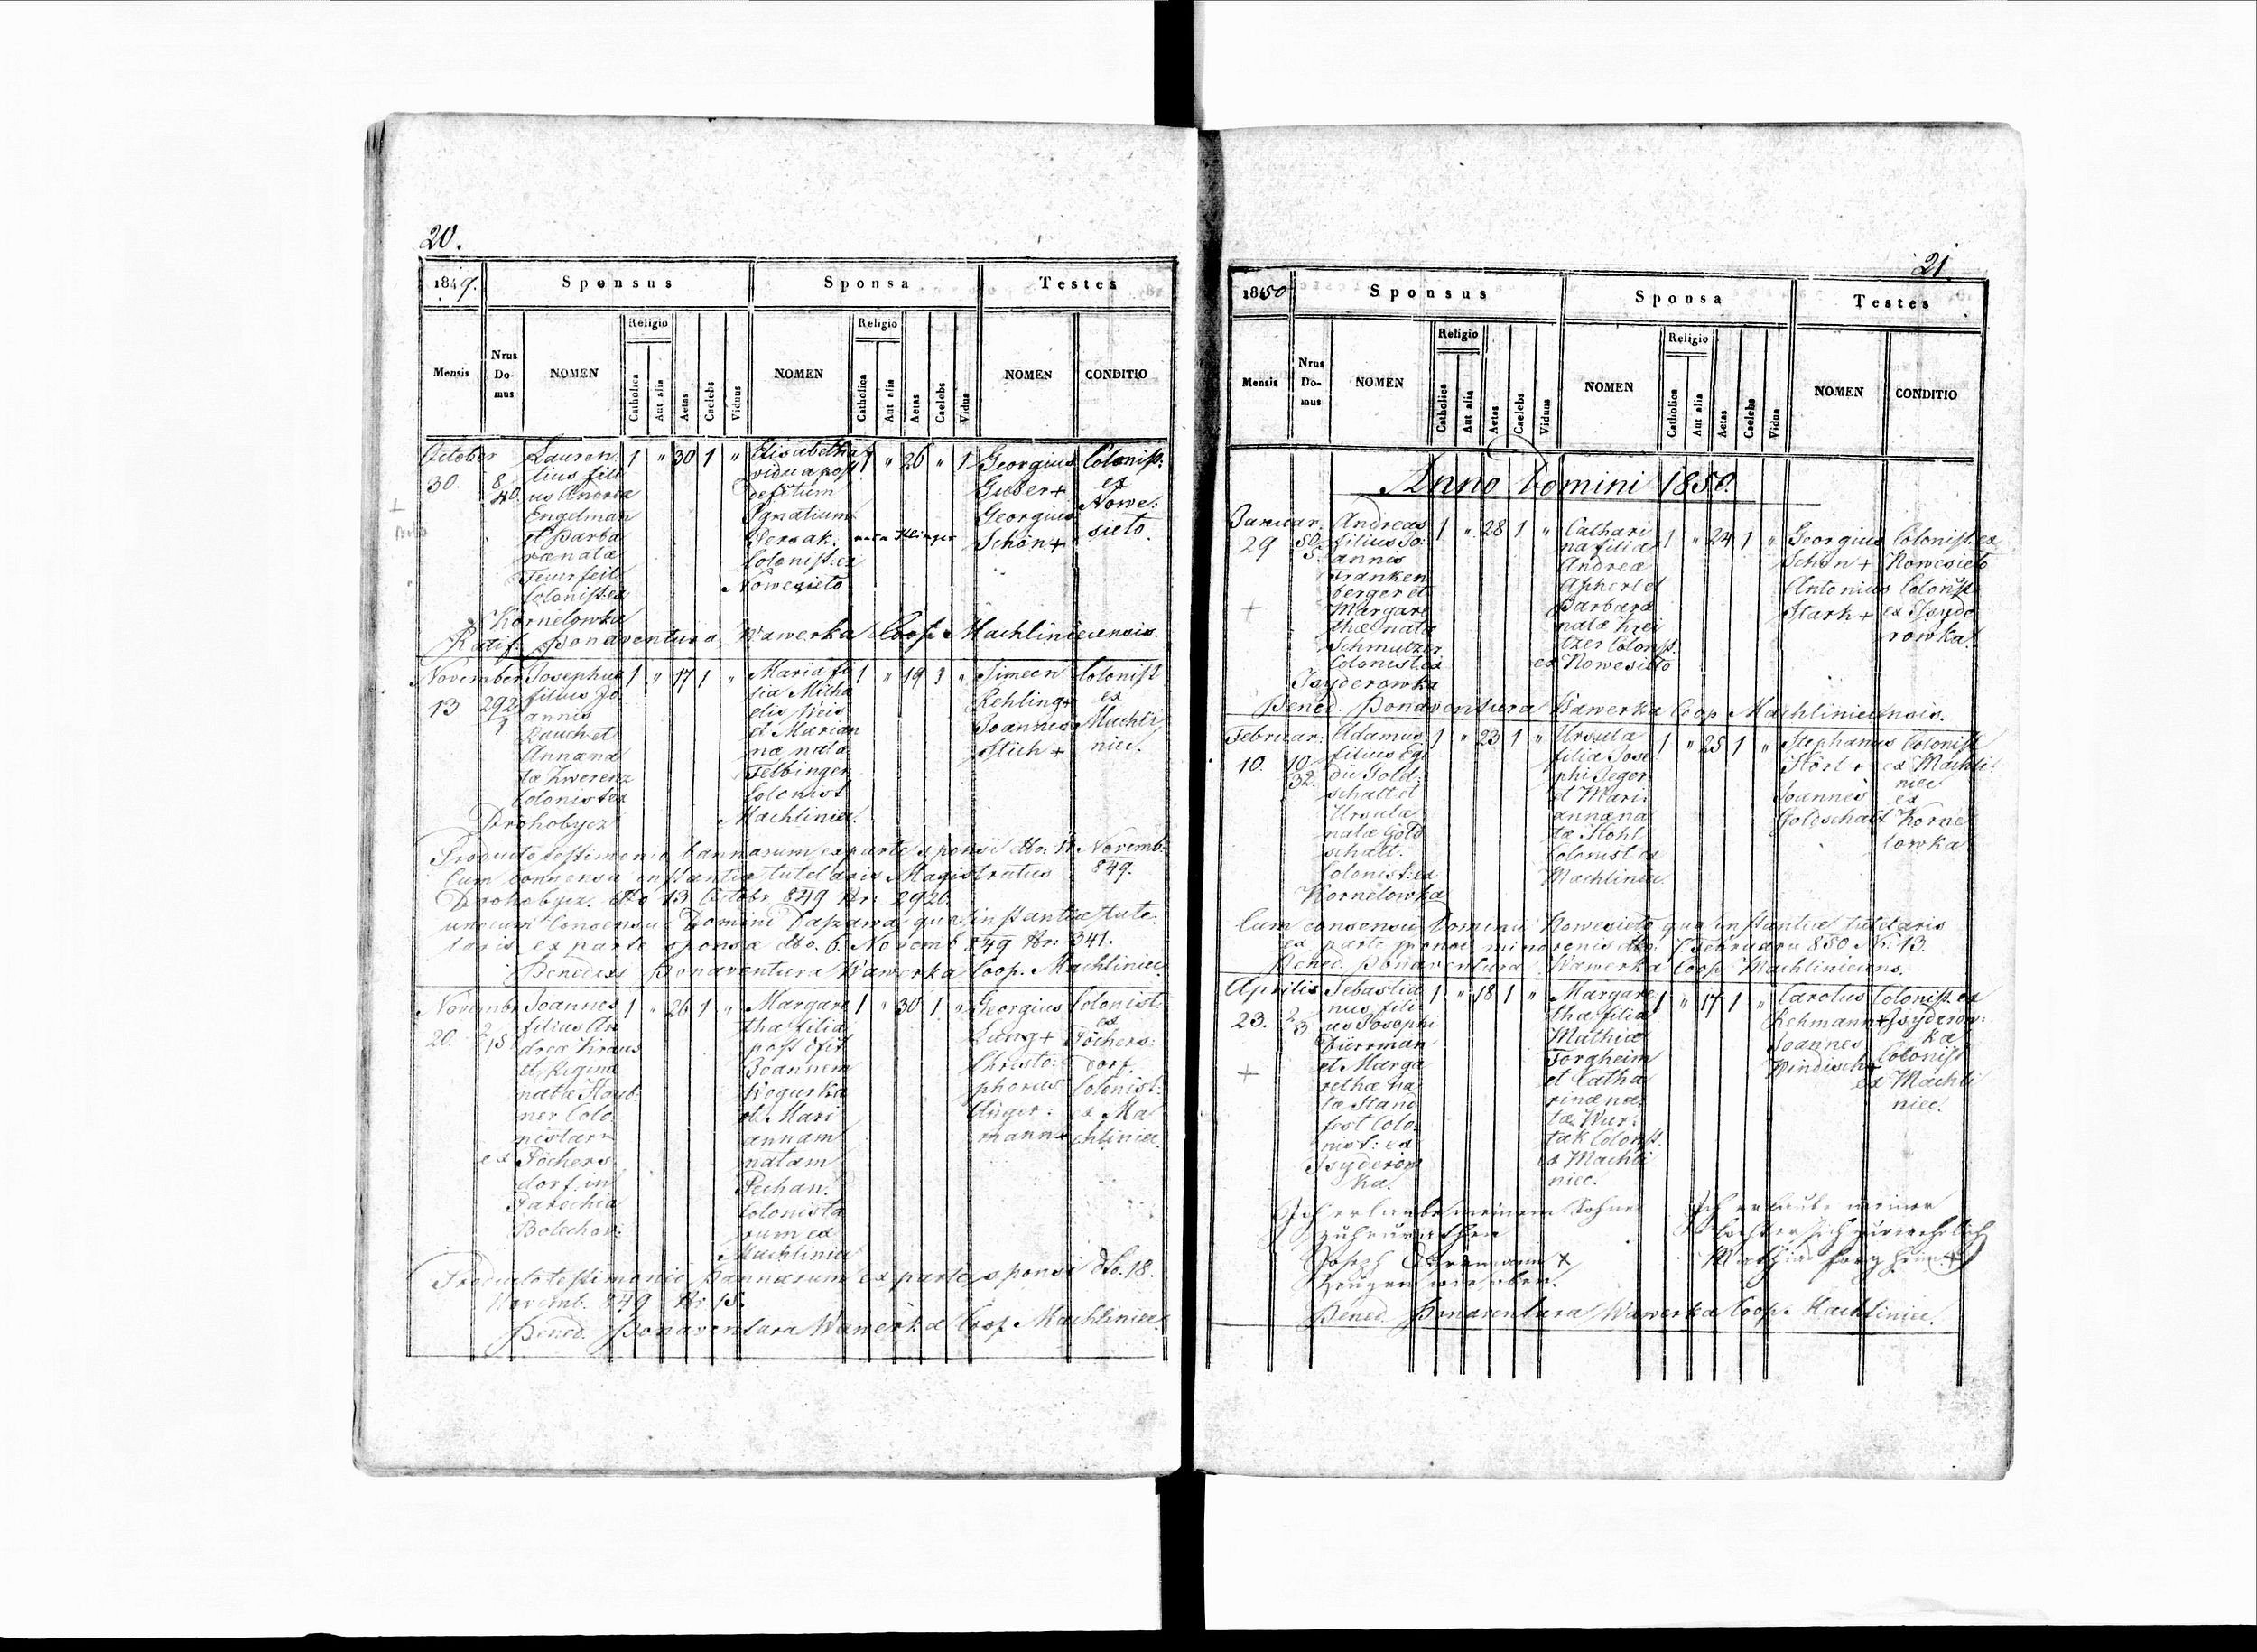 20.
1849.
Sponsus
Sponsa
Testes
Mensis
Nrus Do- mus
NOMEN
Religio
Catholica
Aut alia
Aetas
Caelebs
Viduus
NOMEN
Religio
Catholica
Aut alia
Aetas
Caelebs
Vidua
NOMEN
CONDITIO
October
30.
8
40.
Lauren
tius fili
us Andreæ
Engelman
et Barba
ræ natæ
Feuerfeil
Colonist: ex
Kornelowka
1 " 30 1 "
Elisabetha
vidua post
defctum
Ignatium
Persak.
Colonist: ex
Nowesieto
1 " 26 " 1
Georgius
Guber +
Georgius
Schön +
Colonist:
ex
Nowe:
sieto.
Ratif: Bonaventura Wawerka Coop. Machliniecensis.
November
13
292
Josephus
filius Jo
annis
Rauch et
Annæ na
tæ Zwerenz
Colonist ex
Drohobycz
1 " 17 1 "
Maria fi
lia Micha
elis Weis
et Marian
næ natæ
Felbinger
Colonist
Machliniec.
1 " 19 1 "
Simeon
Rehling +
Joannes
Stich +
Colonist
ex
Machli
niec.
Producto testimonio bannorum ex parte sponsi dto: 11 Novemb.
Cum consensu instantiæ tutelaris Magistratus 849.
Drohobycz. dto 13 Octobr 849 Nr: 2926.
Consensu Domini qua instantiæ tute:
laris ex parte sponsæ dto. 6. Novemb 849 Nr: 341.
Benedixi Bonaventura Wawerka Coop. Machliniec
Novembr
20.
2
15
Joannes
filius An
dreæ Kraus
et Regina
natæ Haub
ner Colo
nistarr
ex Föchers
dorf in
Parochia
Bolechow:
1 " 26 1 "
Margare
tha filia
post dfct
Joannem
Wogurka
et Mari
annam
natam
Pechan.
Colonista
rum ex
Machliniec
1 " 30 1 "
Georgius
Lang +
Christo:
phorus
Anger:
mann +
Colonist:
ex
Föchers:
dorf.
Colonist:
ex Ma
chliniec.
Producto testimonio Bannorum ex parte sponsi dto. 18.
Novemb. 849 Nr 15.
Bened. Bonaventura Wawerka Coop Machliniec.
21.
1850
Sponsus
Sponsa
Testes
Mensis
Nrus Do- mus
NOMEN
Religio
Catholica
Aut alia
Aetas
Caelebs
Viduus
NOMEN
Religio
Catholica
Aut alia
Aetas
Caelebs
Vidua
NOMEN
CONDITIO
Anno Domini 1850.
Januar:
29.
50.
5.
Andreas
filius Jo:
annis
Franken
berger et
Margare
thæ natæ
Schmutzer
Colonist. ex
Isyderowka
1 " 28 1 "
Cathari
na filia
Andreæ
Apherl et
Barbaræ
natæ Krei
tzer Colonist.
ex Nowesieto
1 " 24 1 "
Georgius
Schön +
Antonius
Stark +
Colonist. ex
Nowesieto
Colonist
ex Isyde
rowka.
Bened. Bonaventura Wawerka Coop Machliniecensis.
Februar:
10.
10
32.
Adamus
filius Egi
dii Gold:
schalt et
Ursulæ
natæ Gold
schalt.
Colonist: ex
Kornelowka
1 " 23 1 "
Ursula
filia Jose
phi Jeger
et Mari:
annæ na
tæ Kohl
Colonist. ex
Machliniec.
1 " 25 1 "
Stephanus
Störl +
Joannes
Goldschalt
Colonist
ex Machli:
niec
ex
Korne
lowka
Cum consensu Domini Nowesieto qua instantiæ tutelaris
ex parte sponsæ minorenis dto. Februarii 850 Nr. 13.
Bened. Bonaventura Wawerka Coop Machliniecens.
Aprilis
23.
2.
3
Sebastia
nus fili
us Josephi
Dürrman
et Marga
rethæ na
tæ Stand
fest Colo:
nist: ex
Isyderow
ka.
1 " 18 1 "
Margare:
tha filia
Mathiæ
Forgheim
et Catha
rinæ na
tæ Wur:
tak Colonist.
ex Machli
niec.
1 " 17 1 "
Carolus
Rehmann +
Joannes
Windisch +
Colonist. ex
Isyderow:
ka
Colonist
ex Machli
niec.
Ich erlaube meinem Sohne
zu heurathen
Joseph Dürrmann X
Zeugen wie oben.
Ich erlaube meiner
Tochter sich zu verehelich
Mathias Forgheim +
Bened. Bonaventura Wawerka Coop. Machliniec.